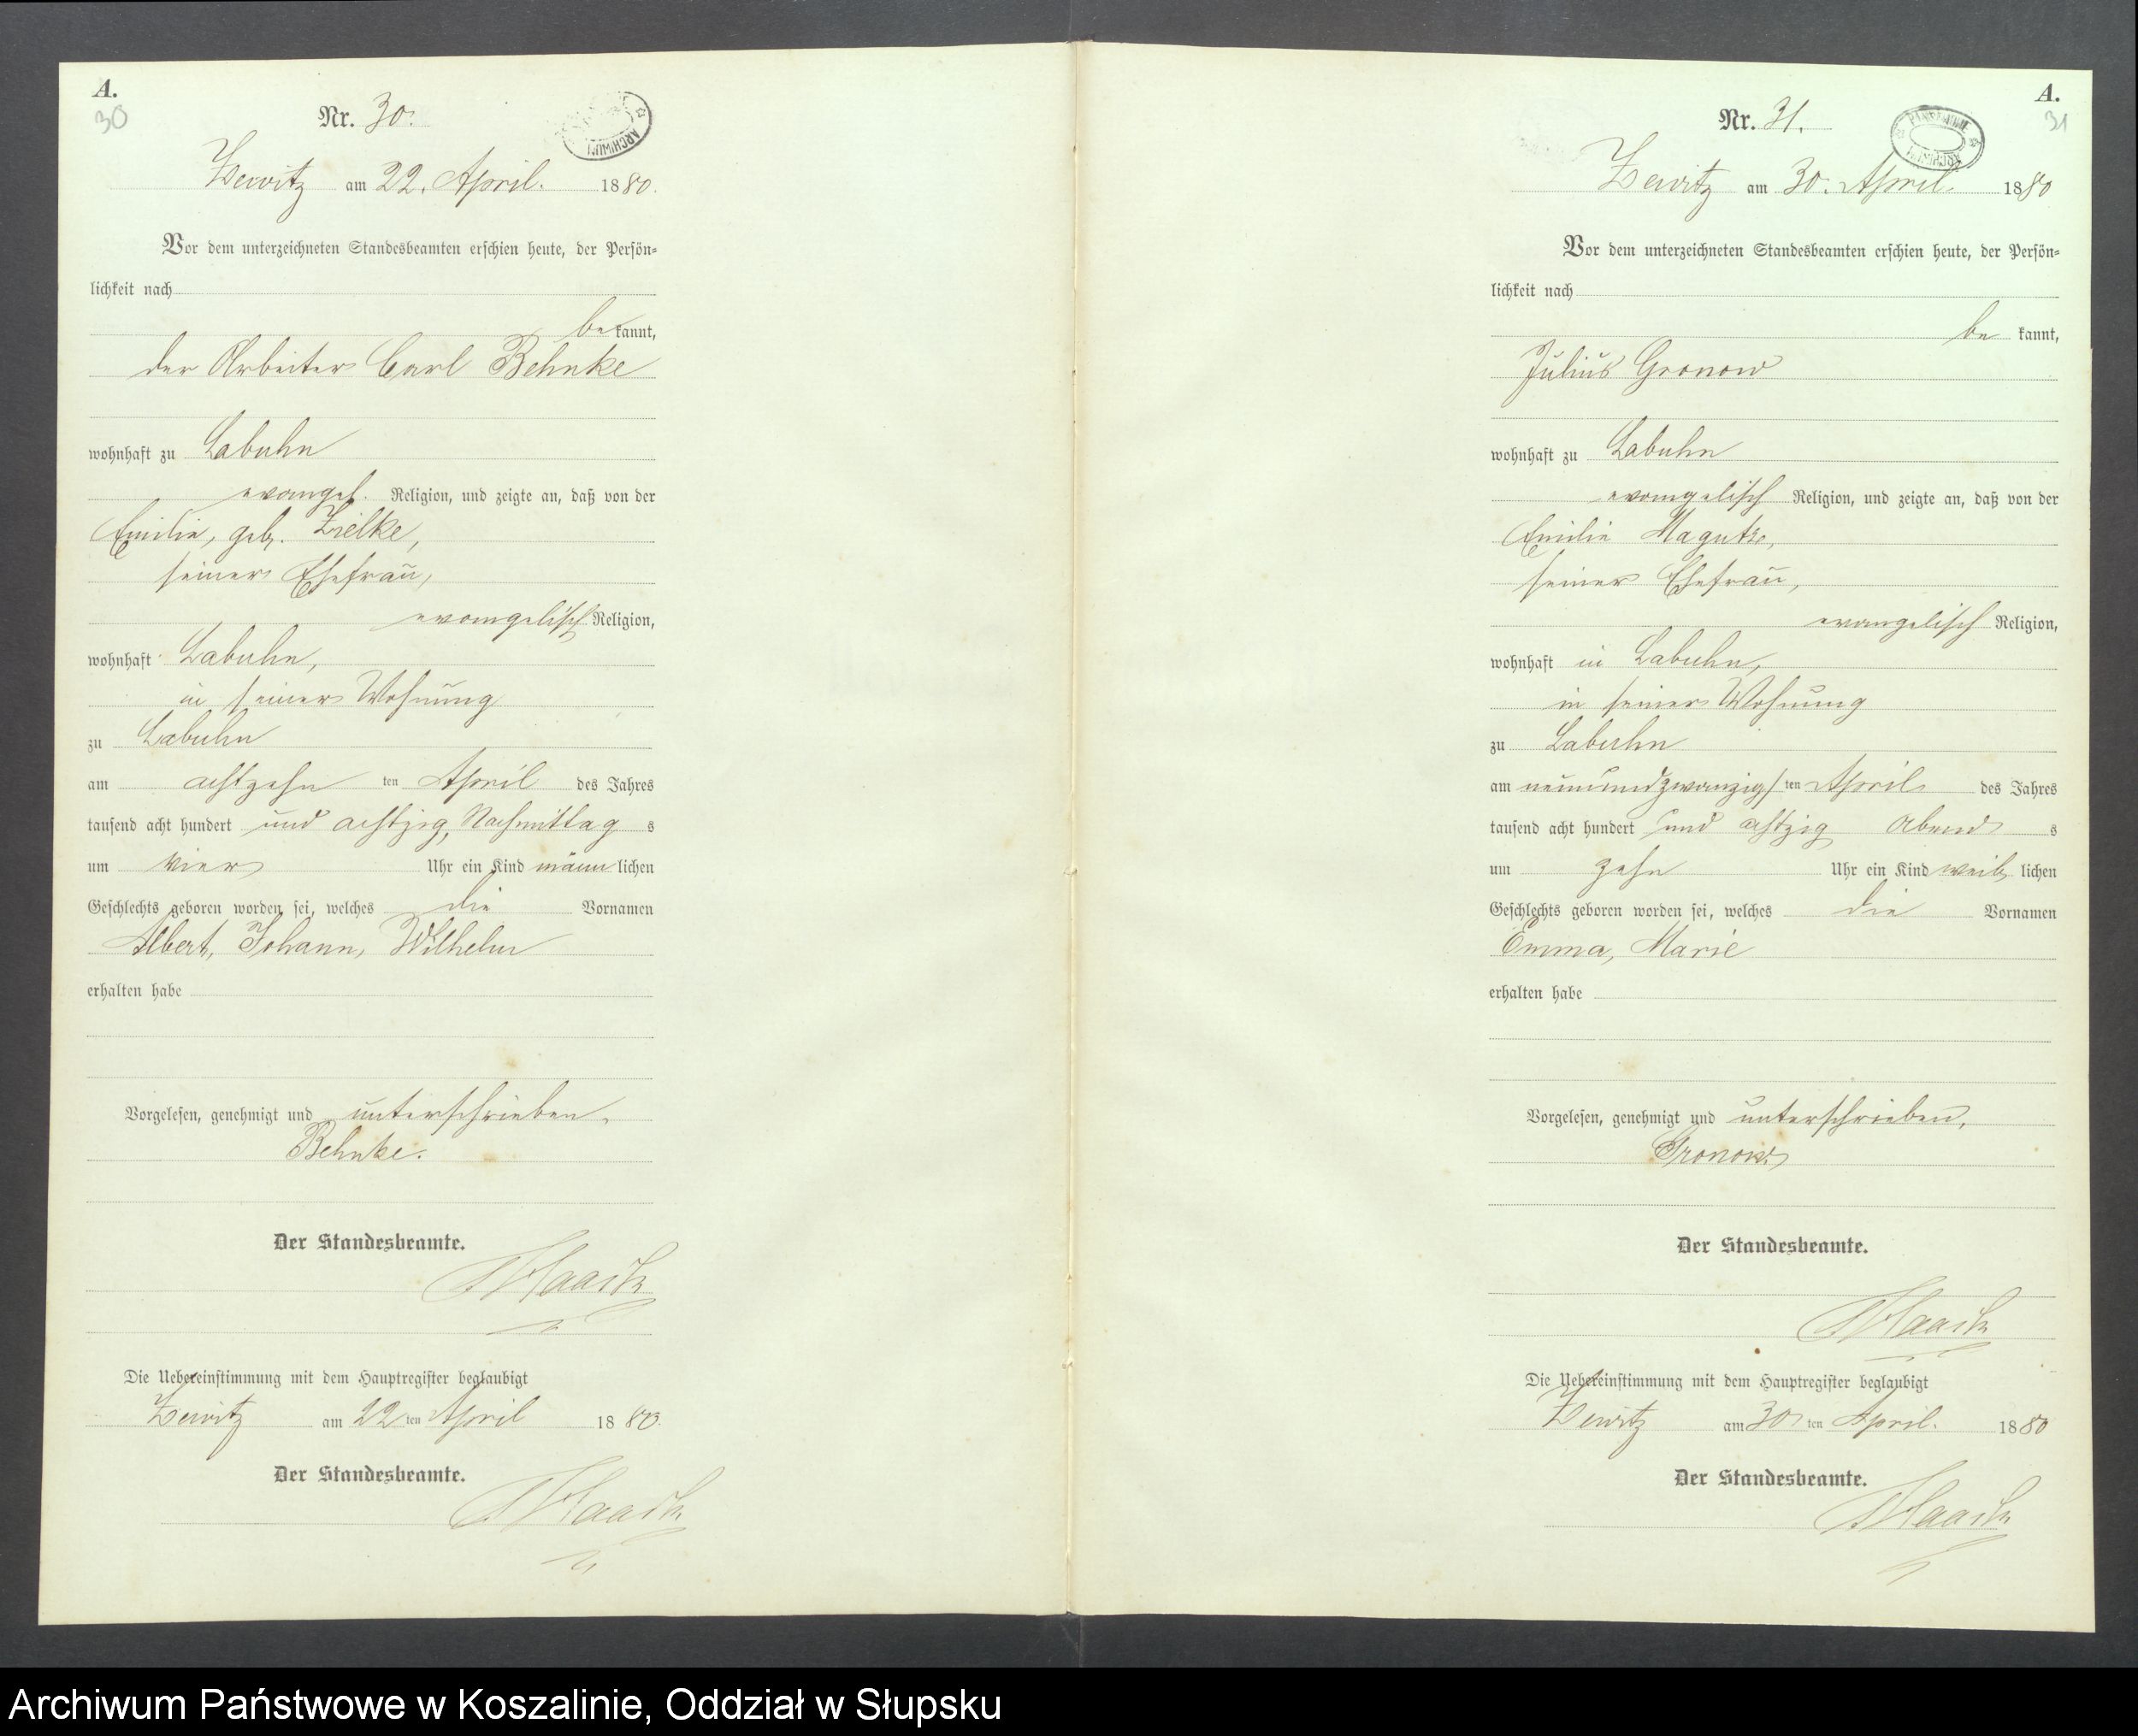 A.
30
Nr. 30.
ARCHIWUM
Zewitz am 22. April. 1880.
Vor dem unterzeichneten Standesbeamten erschien heute, der Persön=
lichkeit nach
be kannt,
der Arbeiter Carl Behnke
wohnhaft zu Labuhn
evangel. Religion, und zeigte an, daß von der
Emilie, geb. Zielke,
seiner Ehefrau,
evangelisch Religion,
wohnhaft Labuhn,
in seiner Wohnung
zu Labuhn
am achtzehn ten April des Jahres
tausend acht hundert und achtzig, Nachmittag s
um vier Uhr ein Kind männ lichen
Geschlechts geboren worden sei, welches die Vornamen
Albert, Johann, Wilhelm
erhalten habe
Vorgelesen, genehmigt und unterschrieben.
Behnke.
Der Standesbeamte.
Haack
Die Uebereinstimmung mit dem Hauptregister beglaubigt
Zewitz am 22 ten April 1880.
Der Standesbeamte.
Haack
A.
31
Nr. 31.
PAŃSTWOWE ARCHIWUM
Zewitz am 30. April. 1880
Vor dem unterzeichneten Standesbeamten erschien heute, der Persön=
lichkeit nach
be kannt,
Julius Gronow
wohnhaft zu Labuhn
evangelisch Religion, und zeigte an, daß von der
Emilie
seiner Ehefrau,
evangelisch Religion,
wohnhaft in Labuhn,
in seiner Wohnung
zu Labuhn
am neunundzwanzigs ten April des Jahres
tausend acht hundert und achtzig Abend s
um zehn Uhr ein Kind weib lichen
Geschlechts geboren worden sei, welches die Vornamen
Emma, Marie
erhalten habe
Vorgelesen, genehmigt und unterschrieben.
Gronow
Der Standesbeamte.
Haack
Die Uebereinstimmung mit dem Hauptregister beglaubigt
Zewitz am 30 ten April. 1880
Der Standesbeamte.
Haack
Archiwum Państwowe w Koszalinie, Oddział w Słupsku